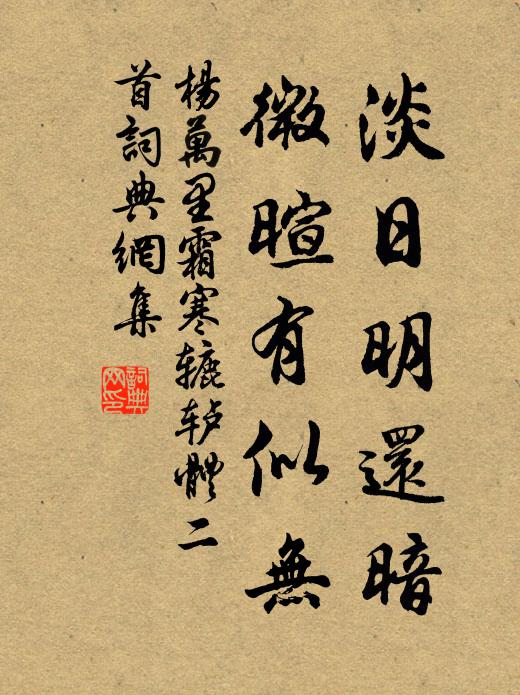 淡日明還暗
微暄有似無
楊萬里霜寒辘轳體二
首詞典網集
詞典
网印